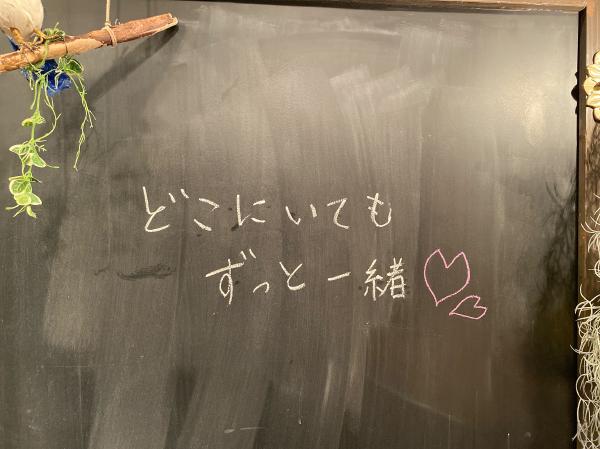 どこにいても
ずっと一緒